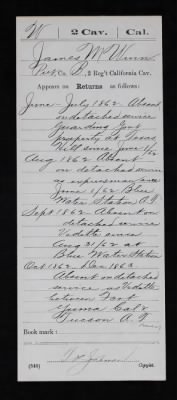 W | 2 Cav. | Cal.
James M Winn
Pvt, Co. B, 2 Reg't California Cav.
Appears on Returns as follows:
June & July 1862. Absent
on detached service
Guarding Govt
property at Texas
Hill since June 1/62
Aug 1862 Absent
on detached serv
as expressman since
June 1/62 Blue
Water Station A.T.
Sept 1862 Absent on
detached service
Vedette since
Aug 31/62 at
Blue Water Station
Oct 1862 Dec 1862
Absent on detached
service as Vedette
between Fort
Yuma Cal &
Tucson A.T.
Book mark:
(546) Copyist.